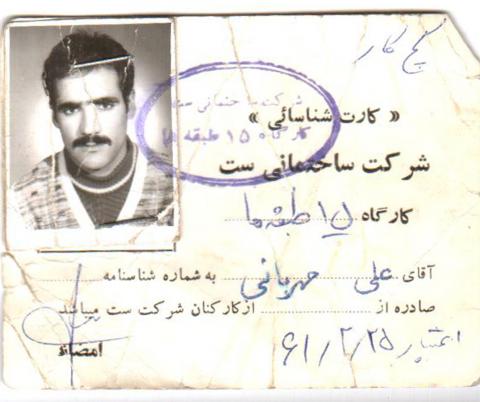 گچ کار
« کارت شناسائی »
شرکت ساختمانی ست
شرکت ساختمانی ست
کارگاه ۱۵ طبقه ها
کارگاه ۱۵ طبقه ها
آقای علی مهربانی به شماره شناسنامه
صادره از از کارکنان شرکت ست میباشد
اعتبار ۶۱/۲/۲۵
امضاء